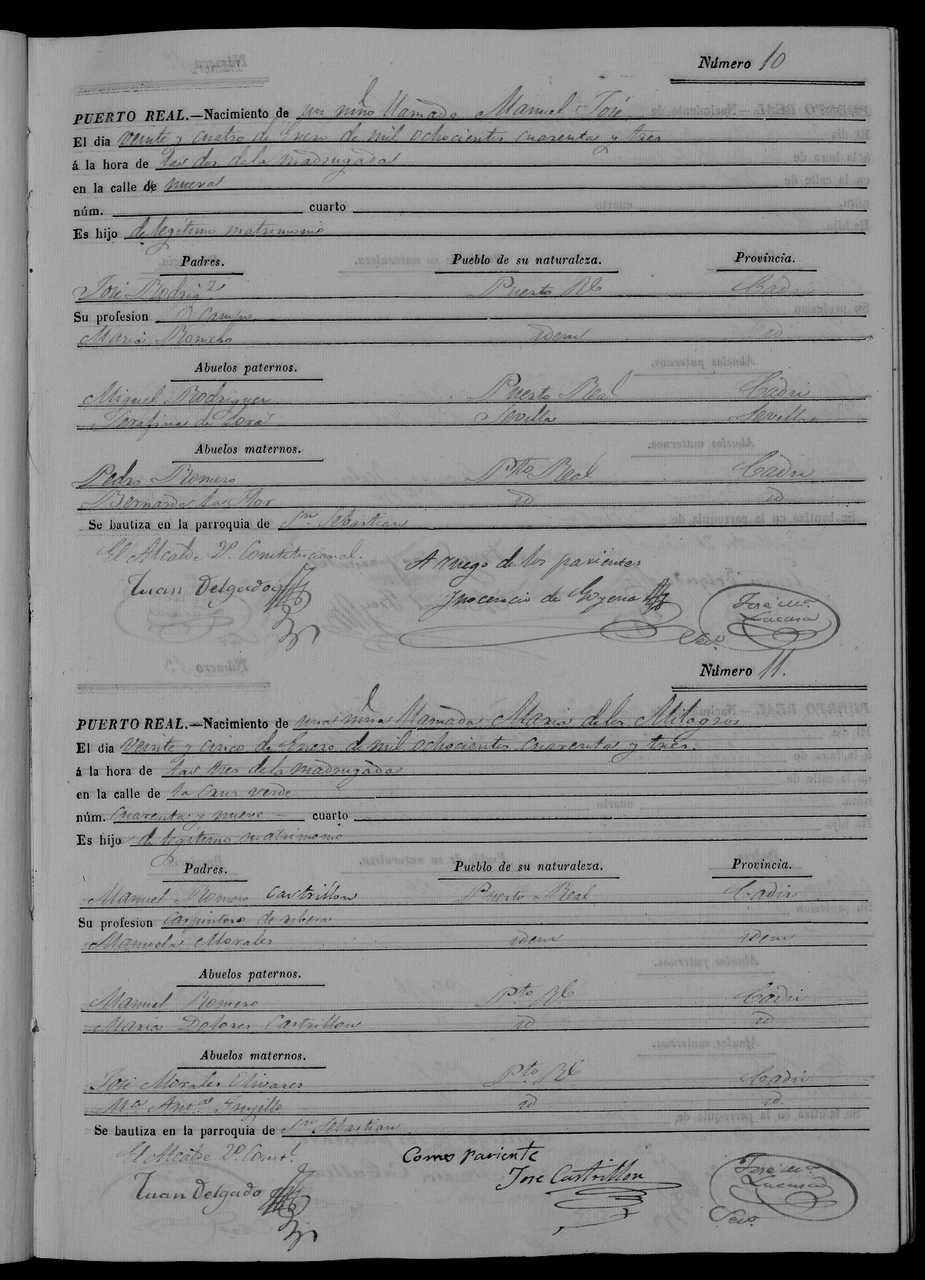 Número 10
PUERTO REAL.—Nacimiento de un niño llamado Manuel José
El dia veinte y cuatro de Enero de mil ochocientos cuarenta y tres
á la hora de las dos de la madrugada
en la calle de nueva
núm. cuarto
Es hijo de legitimo matrimonio
Padres. Pueblo de su naturaleza. Provincia.
José Rodrigz Puerto Rl Cadiz
Su profesion Campo
Maria Romero idem id
Abuelos paternos.
Miguel Rodriguez Puerto Real Cadiz
Josefina de Lora Sevilla Sevilla
Abuelos maternos.
Pedro Romero Pto Real Cadiz
Bernarda id id
Se bautiza en la parroquia de Sn Sebastian
El Alcalde 2º Constitucional. A ruego de los parientes
Juan Delgado Inocencio de Goyena José Mª Lacasa
Seco.
Número 11.
PUERTO REAL.—Nacimiento de una niña llamada Maria de los Milagros
El dia veinte y cinco de Enero de mil ochocientos cuarenta y tres.
á la hora de las tres de la madrugada
en la calle de la Cruz verde
núm. cuarenta y nueve cuarto
Es hijo de legitimo matrimonio
Padres. Pueblo de su naturaleza. Provincia.
Manuel Romero Castrillon Puerto Real Cadiz
Su profesion Carpintero de ribera
Manuela Morales idem idem
Abuelos paternos.
Manuel Romero Pto Rl Cadiz
Maria Dolores Castrillon id id
Abuelos maternos.
José Morales Olivares Pto Rl Cadiz
Mª Trujillo id id
Se bautiza en la parroquia de Sn Sebastian
El Alcalde 2º Const. Como pariente
Juan Delgado Jose Castrillon José Mª Lacasa
Seco.